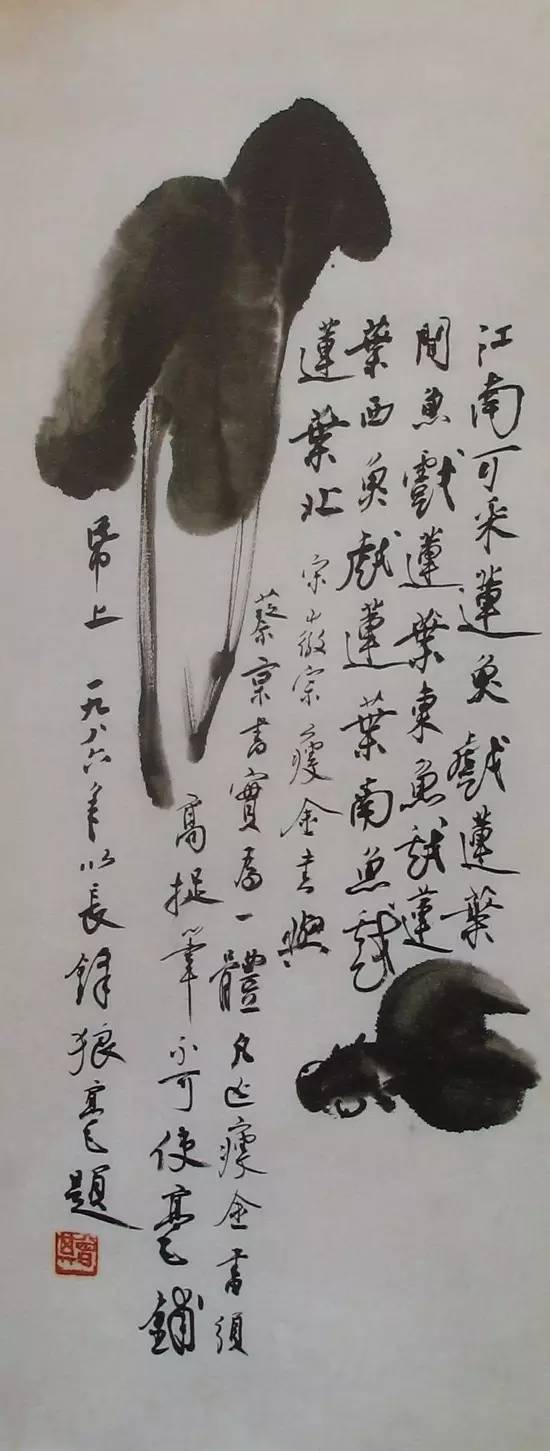 江南可采蓮魚戲蓮葉
間魚戲蓮葉東魚戲蓮
葉西魚戲蓮葉南魚戲
蓮葉北 宋徽宗瘦金書與
蔡京書實為一體凡瘦金書須
高捉筆不可使毫鋪
帋上 一九八六年以長鋒狼毫題